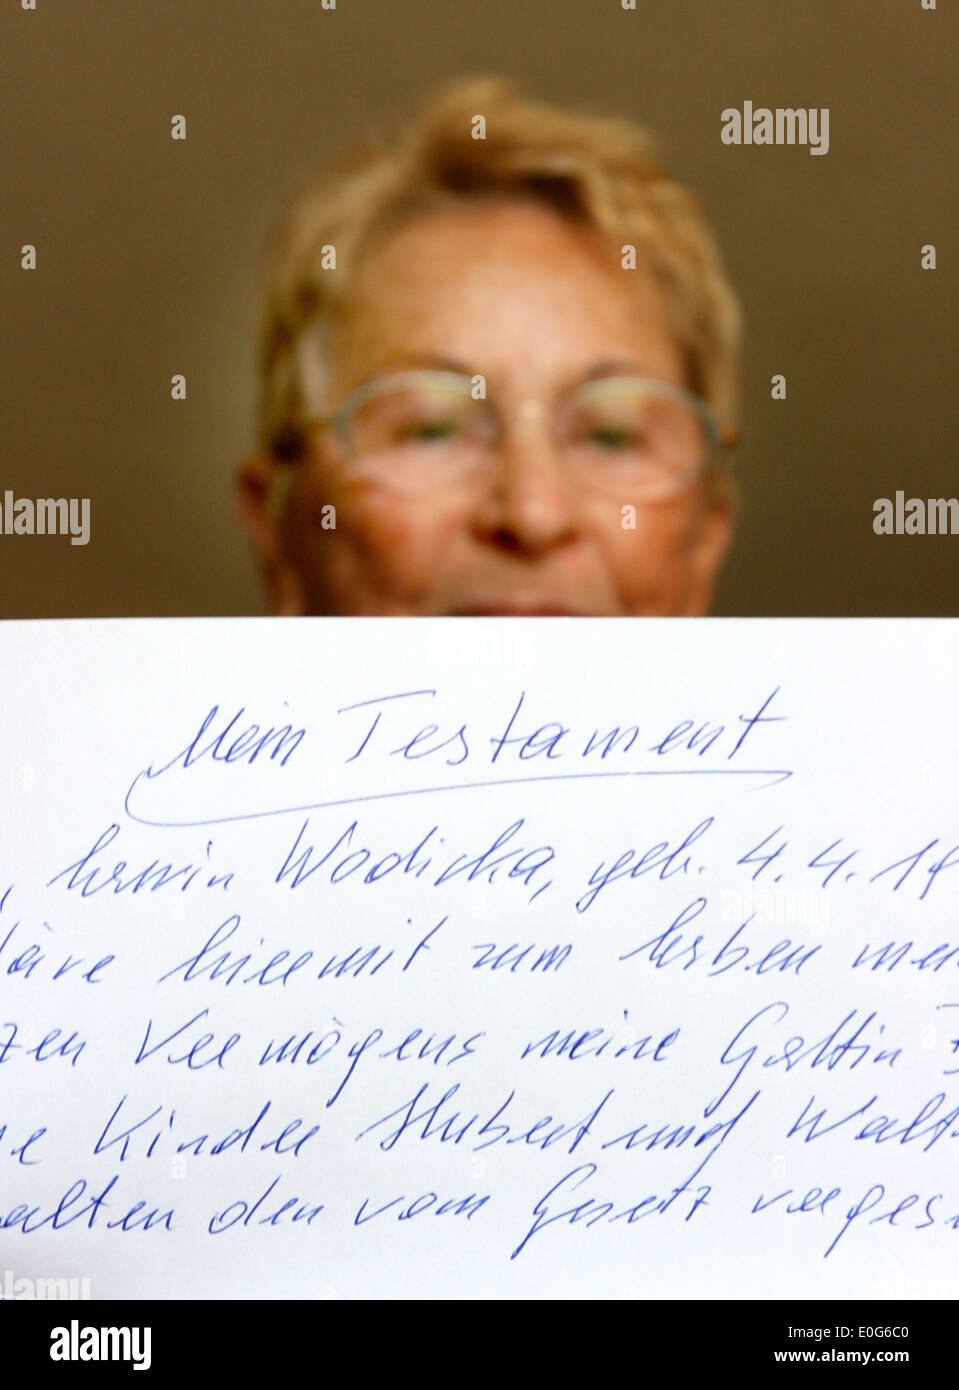 Mein Testament
, Erwin Wodicka, geb. 4.4.19
läre hiermit zum Erben mei
zen Vermögens meine Gattin
ne Kinder Hubert und Walt
alten den vom Gesetz vorges
alamy
Image ID: E0G6C0
www.alamy.com